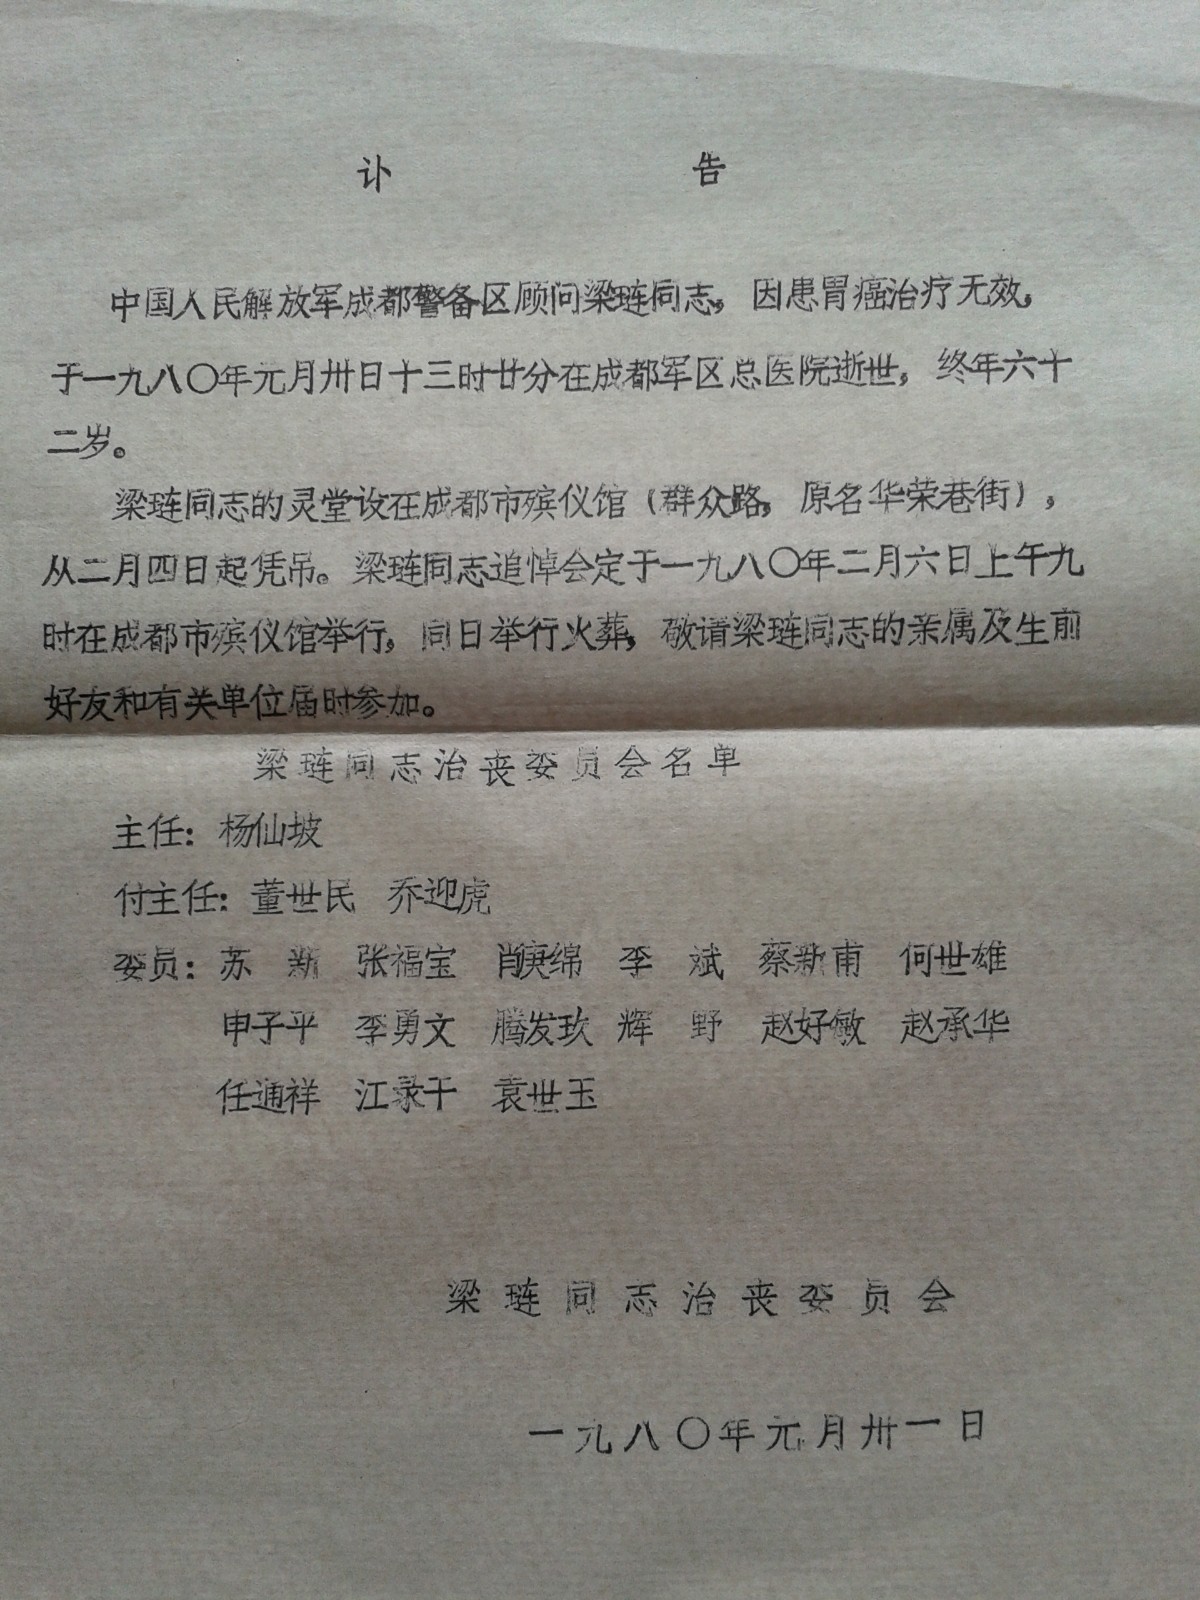 讣告
中国人民解放军成都警备区顾问梁琏同志，因患胃癌治疗无效，
于一九八〇年元月卅日十三时廿分在成都军区总医院逝世，终年六十
二岁。
梁琏同志的灵堂设在成都市殡仪馆（群众路，原名华荣巷街），
从二月四日起凭吊。梁琏同志追悼会定于一九八〇年二月六日上午九
时在成都市殡仪馆举行，同日举行火葬，敬请梁琏同志的亲属及生前
好友和有关单位届时参加。
梁琏同志治丧委员会名单
主任：杨仙坡
付主任：董世民 乔迎虎
委员：苏新 张福宝 肖庚绵 李斌 蔡新甫 何世雄
申子平 李勇文 腾发玖 辉野 赵好敏 赵承华
任通祥 江录干 袁世玉
梁琏同志治丧委员会
一九八〇年元月卅一日